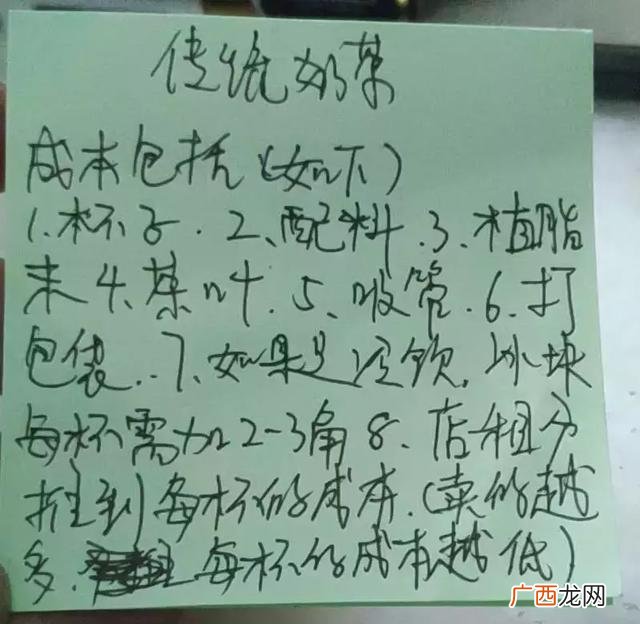 传统奶茶
成本包括(如下)
1.杯子.2、配料.3.植脂
末4、茶叶.5、吸管.6.打
包袋..7、如果是冷饮.冰块
每杯需加2-3角8.店租分
摊到每杯的成本.(卖的越
多.每杯的成本越低)
广西龙网